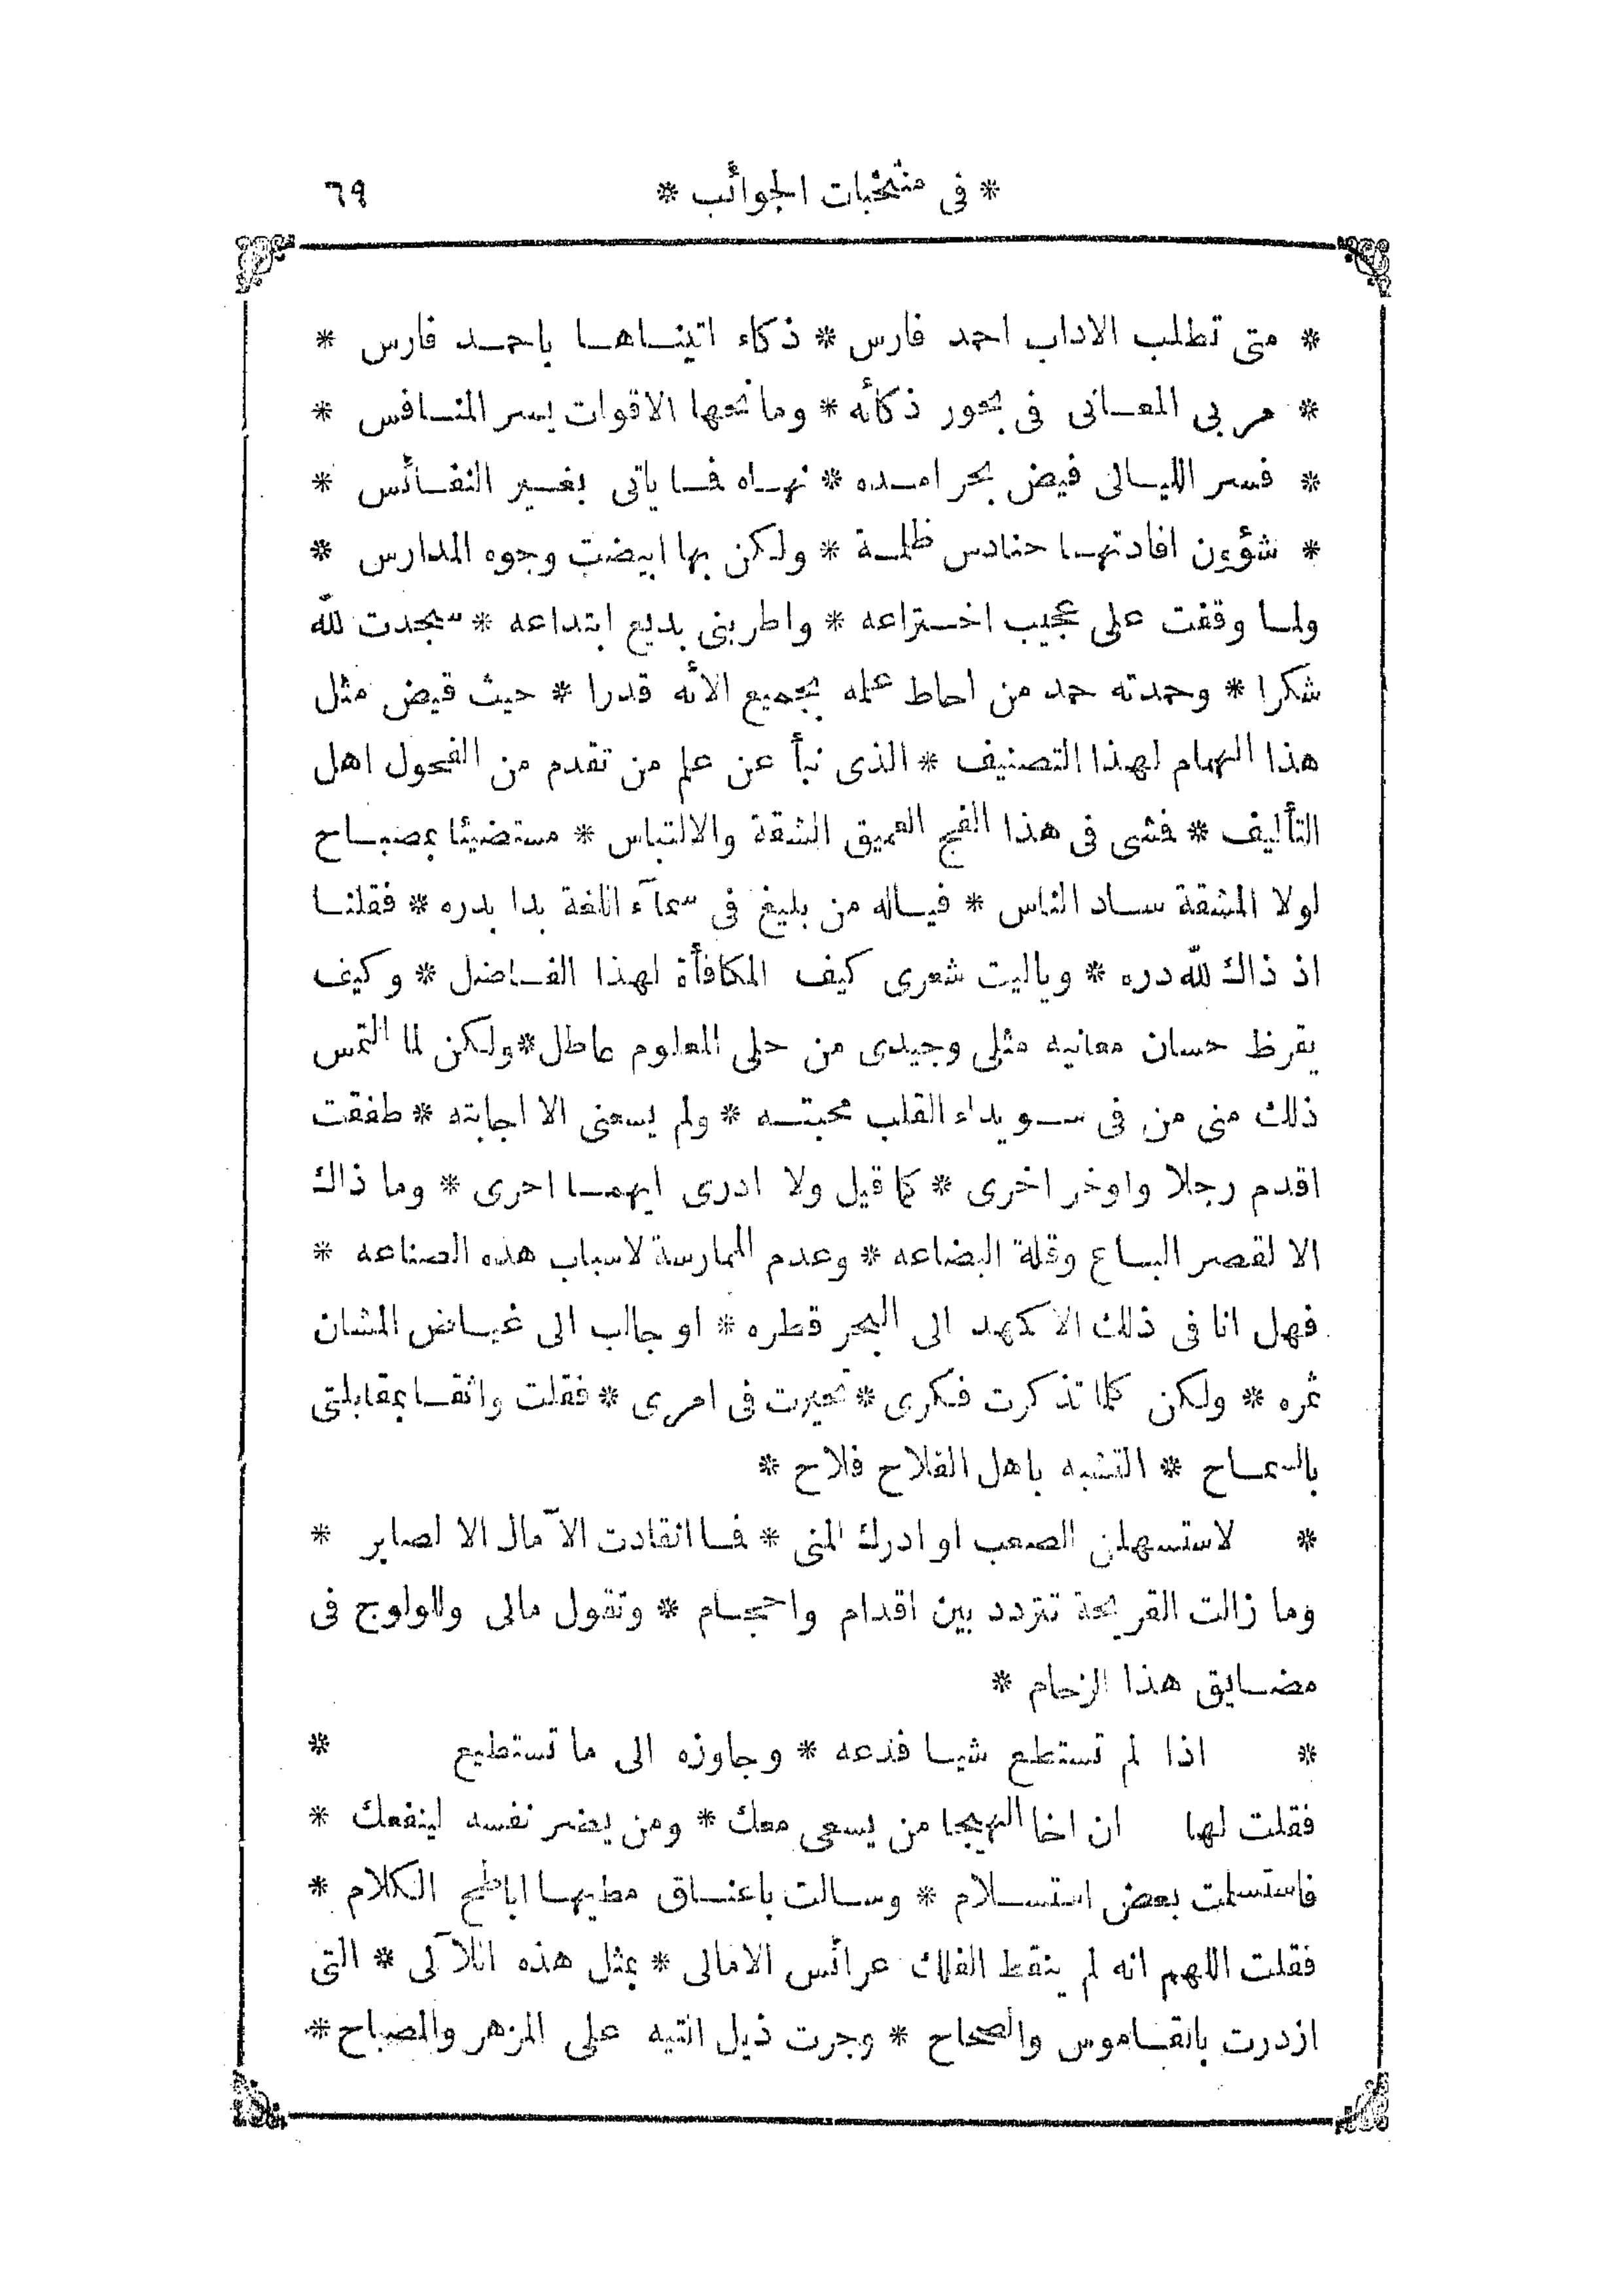 * فى منتخبات الجوائب * ٦٩
* متى تطلب الاداب احمد فارس * ذكاء اتينـاهـا باحمـد فارس *
* مربى المعـانى فى بحور ذكائه * ومانحها الاقوات بسر المنـافس *
* فسر الليـالى فيض بحر امـده * نهـاه فـا ياتى بغـير النفـائس *
* شؤون افادتهـا حنادس ظلمـة * ولكن بها ابيضت وجوه المدارس *
ولمـا وقفت على عجيب اخـتراعه * واطربنى بديع ابتداعه * سجدت لله
شكرا * وحمدته حمد من احاط علمه بجميع الائه قدرا * حيث قيض مثل
هذا الهمام لهذا التصنيف * الذى نبأ عن علم من تقدم من الفحول اهل
التأليف * فمشى فى هذا الفج العميق الشقة والالتباس * مستضيئا بمصبـاح
لولا المشقة سـاد الناس * فيـاله من بليغ فى سمآء اللغة بدا بدره * فقلنـا
اذ ذاك لله دره * وياليت شعرى كيف المكافأة لهذا الفـاضل * وكيف
يقرظ حسان معانيه مثلى وجيدى من حلى العلوم عاطل * ولكن لما التمس
ذلك منى من فى سـويداء القلب محبتـه * ولم يسعنى الا اجابته * طفقت
اقدم رجلا واوخر اخرى * كما قيل ولا ادرى ايهمـا احرى * وما ذاك
الا لقصر البـاع وقلة البضاعه * وعدم الممارسة لاسباب هذه الصناعه *
فهل انا فى ذلك الا كمهد الى البحر قطره * او جالب الى غيـاض المشان
ثمره * ولكن كلما تذكرت فكرى * تحيرت فى امرى * فقلت واثقـا بمقابلتى
بالسمـاح * التشبه باهل الفلاح فلاح *
* لاستسهلن الصعب او ادرك المنى * فـا انقادت الآمال الا لصابر *
وما زالت القريحة تتردد بين اقدام واحجـام * وتقول مالى وللولوج فى
مضـايق هذا الزحام *
* اذا لم تستطع شيـا فدعه * وجاوزه الى ما تستطيع *
فقلت لها ان اخا الهيجا من يسعى معك * ومن يضر نفسه لينفعك *
فاستسلمت بعض استسـلام * وسـالت باعنـاق مطيهـا اباطح الكلام *
فقلت اللهم انه لم ينقط الفلك عرائس الامالى * بمثل هذه اللآلى * التى
ازدرت بالقـاموس والصحاح * وجرت ذيل التيه على المزهر والمصباح *